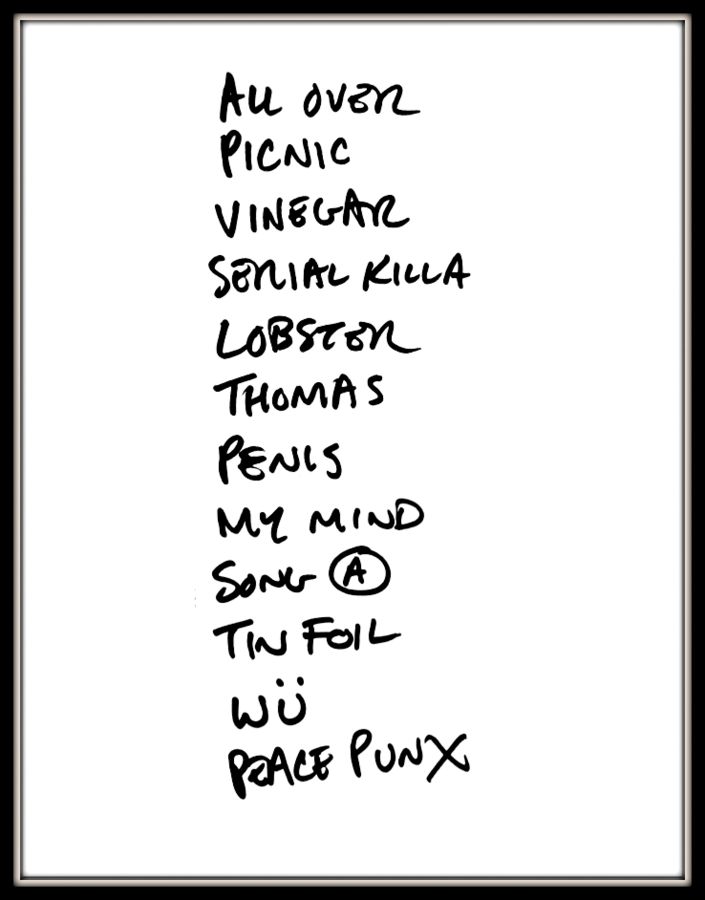 ALL OVER
PICNIC
VINEGAR
SERIAL KILLA
LOBSTER
THOMAS
PENIS
MY MIND
SONG A
TIN FOIL
WÜ
PEACE PUNX